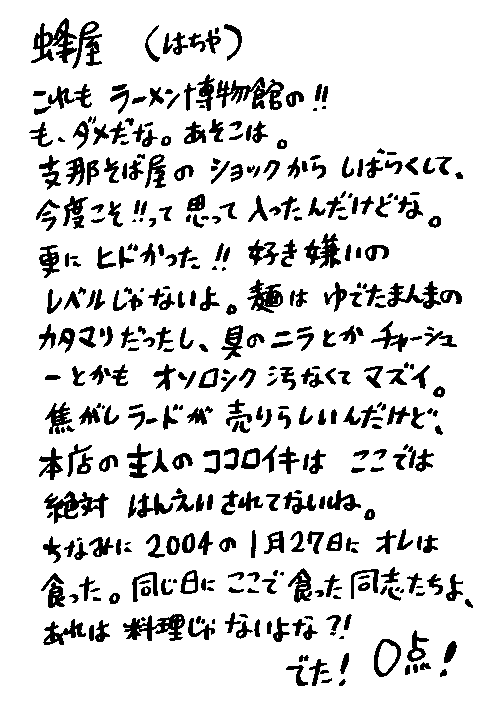 蜂屋 (はちや)
これも ラーメン博物館の!!
も、ダメだな。あそこは。
支那そば屋の ショックから しばらくして、
今度こそ!!って 思って 入ったんだけどな。
更に ヒドかった!! 好き嫌いの
レベルじゃないよ。麺は ゆでたまんまの
カタマリだったし、具のニラとか チャーシュ
ーとかも オソロシク 汚なくて マズイ。
焦がしラードが 売りらしいんだけど、
本店の主人のココロイキは ここでは
絶対 はんえいされてないね。
ちなみに 2004の1月27日に オレは
食った。同じ日に ここで 食った同志たちよ、
あれは 料理じゃないよな?!
でた! 0点!